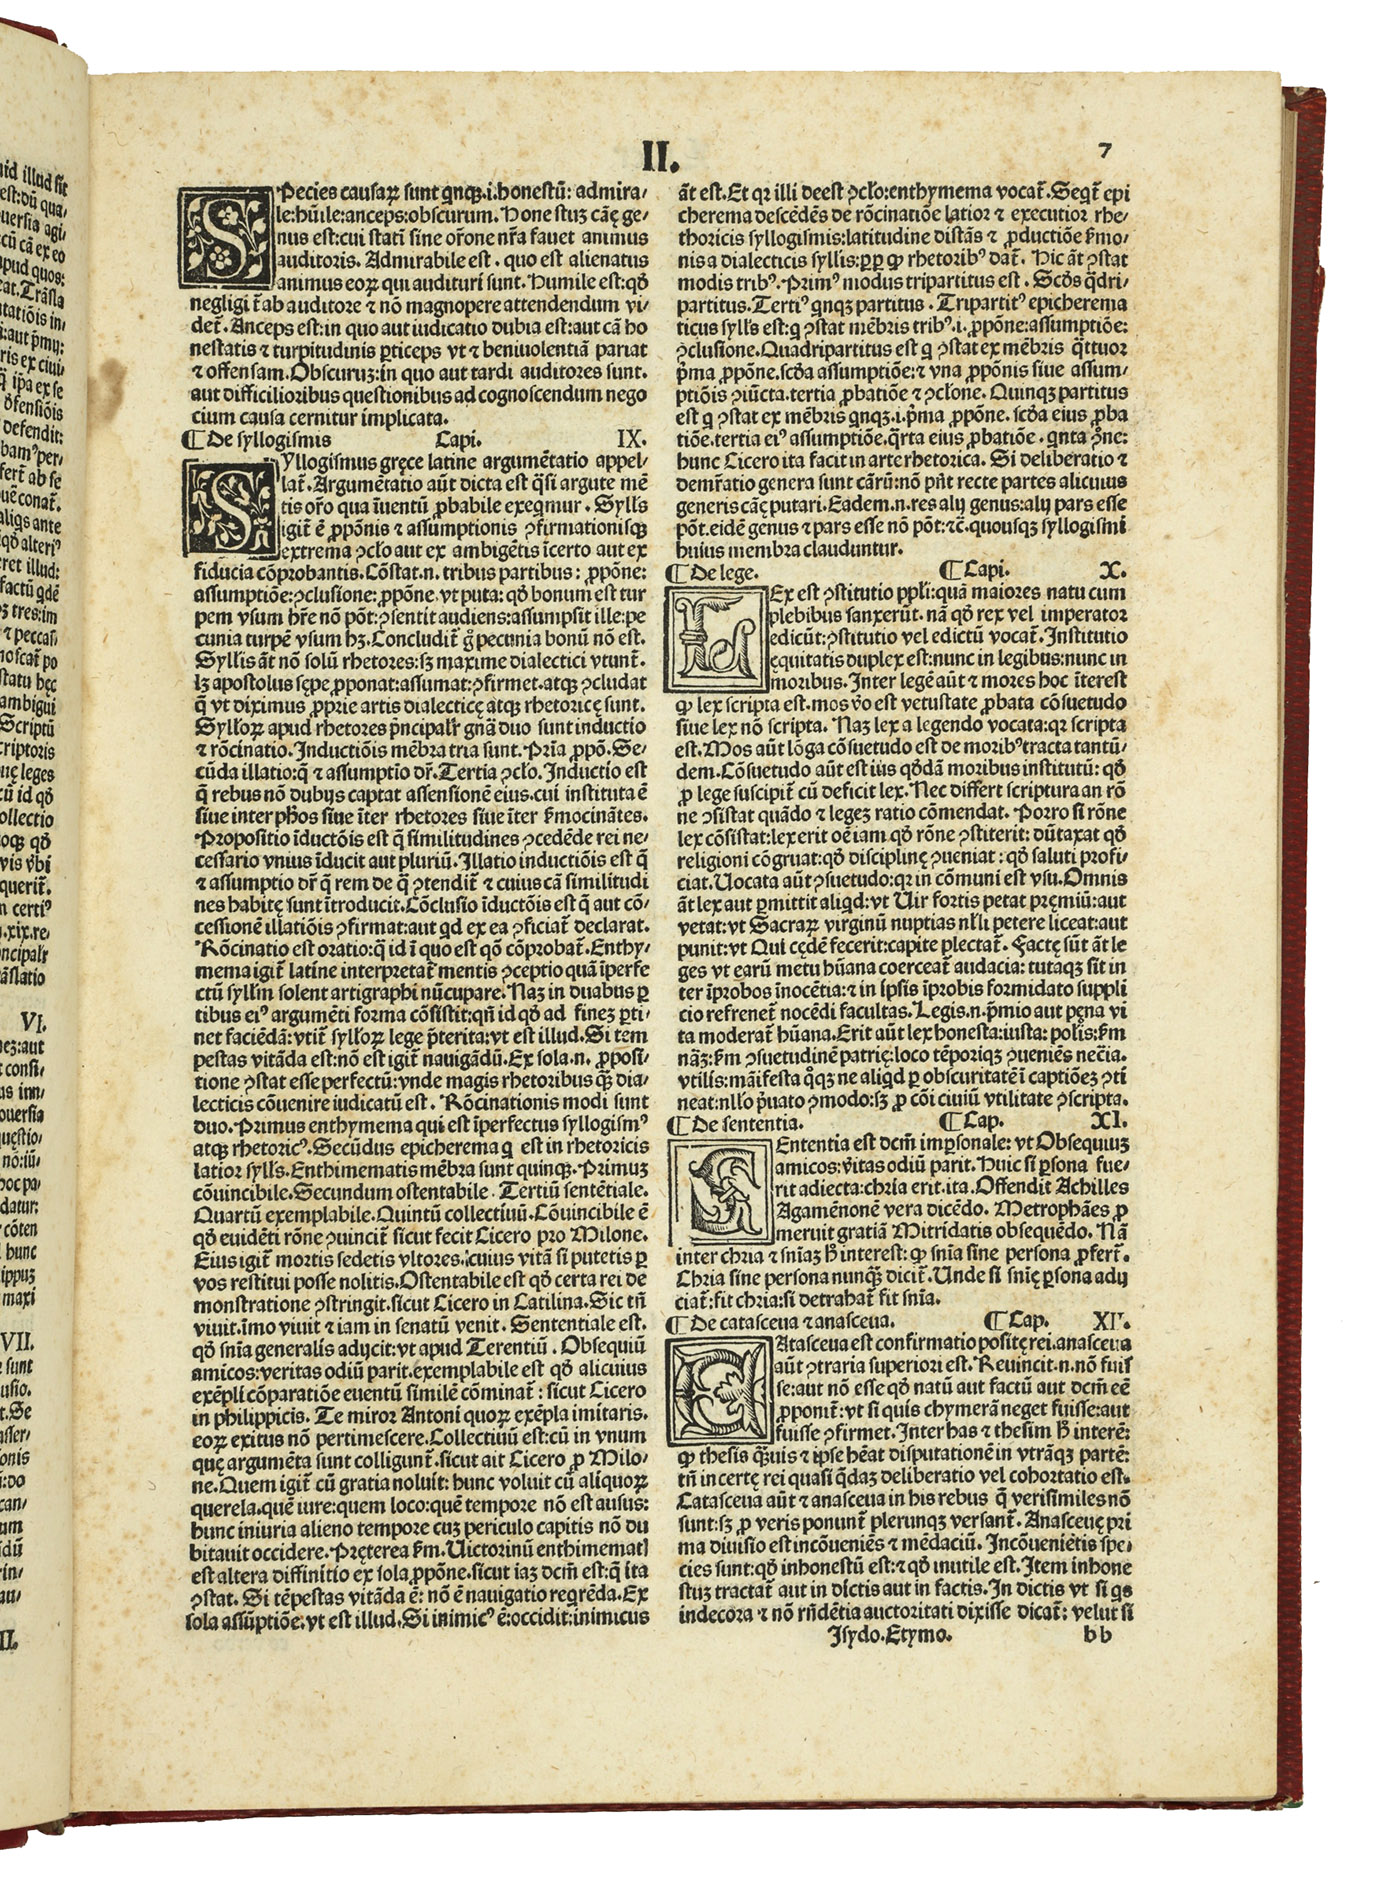 II.
7
SPecies causaꝝ sunt qnqꝫ.i.honestũ: admira-
le:hũile:anceps:obscurum. Hone stuꝫ cãę ge-
nus est:cui stati sine oŕone nŕa fauet animus
auditoris. Admirabile est . quo est alienatus
animus eoꝝ qui audituri sunt. Humile est:qð
negligi t̃ ab auditore ⁊ nõ magnopere attendendum vi-
det̃. Anceps est:in quo aut iudicatio dubia est:aut cã ho
nestatis ⁊ turpitudinis ꝑticeps vt ⁊ beniuolentiã pariat
⁊ offensam. Obscuruꝫ:in quo aut tardi auditores sunt.
aut difficilioribus questionibus ad cognoscendum nego
cium causa cernitur implicata.
¶ De syllogismis Capi. IX.
SYllogismus gręce latine argumẽtatio appel-
lat̃. Argumẽtatio aũt dicta est q̃si argute mẽ
tis oŕo qua iuẽntũ ꝓbabile exeqmur. Sylls
igit̃ ẽ ꝓpõnis ⁊ assumptionis ꝯfirmationisqꝫ
extrema ꝯclo aut ex ambigẽtis ĩcerto aut ex
fiducia cõprobantis. Cõstat.n. tribus partibus: ꝓpõne:
assumptiõe:ꝯclusione: ꝓpõne.vt puta: qð bonum est tur
pem vsum hr̃e nõ põt:ꝯsentit audiens:assumpsit ille:pe
cunia turpẽ vsum hꝫ. Concludit̃ gͦ pecunia bonũ nõ est.
Syllis ãt nõ solũ rhetores:sꝫ maxime dialectici vtunt̃.
lꝫ apostolus sępe ꝓponat:assumat:ꝯfirmet.atqꝫ ꝯcludat
q̃ vt diximus ꝓprie artis dialecticę atqꝫ rhetoricę sunt.
Sylloꝝ apud rhetores p̃ncipalr̃ gñã duo sunt inductio
⁊ rõcinatio. Inductiõis mẽbra tria sunt. Prĩa ꝓpõ. Se-
cũda illatio:q̃ ⁊ assumptio dr̃. Tertia ꝯclo. Inductio est
q̃ rebus nõ dubijs captat assensionẽ eius.cui instituta ẽ
siue inter phos siue ĩter rhetores siue ĩter s̃mocinãtes.
Propositio ĩductõis est q̃ similitudines ꝯcedẽde rei ne-
cessario vnius ĩducit aut pluriũ. Illatio inductiõis est q̃
⁊ assumptio dr̃ q̃ rem de q̃ ꝯtendit̃ ⁊ cuius cã similitudi
nes habitę sunt ĩtroducit. Cõclusio ĩductõis est q̃ aut cõ-
cessionẽ illatiõis ꝯfirmat:aut qd ex ea ꝯficiat̃ declarat.
Rõcinatio est oratio:q̃ id ĩ quo est qõ cõprobat̃. Enthy-
mema igit̃ latine interpretat̃ mentis ꝯceptio quã ĩperfe
ctũ syllm solent artigraphi nũcupare. Naꝫ in duabus ꝑ
tibus eiꝰ argumẽti forma cõsistit:qñ id qð ad fineꝫ ꝑti-
net faciẽdã: vtit̃ sylloꝝ lege p̃terita:vt est illud. Si tem
pestas vitãda est:nõ est igit̃ nauigãdũ. Ex sola.n. ꝓposi-
tione ꝯstat esse perfectũ:vnde magis rhetoribus q̃ꝫ dia-
lecticis cõuenire iudicatũ est. Rõcinationis modi sunt
duo. Primus enthymema qui est ĩperfectus syllogismꝰ
atqꝫ rhetoricꝰ. Secũdus epicherema q est in rhetoricis
latior sylls. Enthimematis mẽbra sunt quinqꝫ. Primuꝫ
cõuincibile. Secundum ostentabile . Tertiũ sentẽtiale.
Quartũ exemplabile. Quintũ collectiuũ. Cõuincibile ẽ
qð euidẽti rõne ꝯuincit̃ sicut fecit Cicero pro Milone.
Eius igit̃ mortis sedetis vltores.cuius vitã si putetis ꝑ
vos restitui posse nolitis. Ostentabile est qð certa rei de
monstratione ꝯstringit.sicut Cicero in Catilina. Sic tñ
viuit.ĩmo viuit ⁊ iam in senatũ venit . Sententiale est.
qð snĩa generalis adijcit:vt apud Terentiũ . Obsequiũ
amicos:veritas odiũ parit.exemplabile est qð alicuius
exẽpli cõparatiõe euentũ similẽ cõminat̃ : sicut Cicero
in philippicis. Te miror Antoni quoꝝ exẽpla imitaris.
eoꝝ exitus nõ pertimescere. Collectiuũ est:cũ in vnum
quę argumẽta sunt colligunt̃.sicut ait Cicero ꝓ Milo-
ne. Quem igit̃ cũ gratia noluit: hunc voluit cũ aliquoꝝ
querela.quẽ iure:quem loco:quẽ tempore nõ est ausus:
hunc iniuria alieno tempore cuꝫ periculo capitis nõ du
bitauit occidere. Pręterea s̃m. Uictorinũ enthimemat̃
est altera diffinitio ex sola ꝓpõne.sicut iaꝫ dcm̃ est:q̃ ita
ꝯstat. Si tẽpestas vitãda ẽ: nõ ẽ nauigatio reqrẽda. Ex
sola assũptiõe.vt est illud. Si inimicꝰ ẽ:occidit:inimicus
ãt est. Et qꝛ illi deest ꝯclo:enthymema vocat̃. Seqt̃ epi
cherema descẽdẽs de rõcinatiõe latior ⁊ executior rhe-
thoricis syllogismis:latitudine distãs ⁊ ꝓductiõe s̃mo-
nis a dialecticis syllis:ꝓp qꝫ rhetoribꝰ dat̃. Hic ãt ꝯstat
modis tribꝰ. Primꝰ modus tripartitus est . Scðs q̃dri-
partitus. Tertiꝰ qnqꝫ partitus . Tripartitꝰ epicherema
ticus sylls est:q ꝯstat mẽbris tribꝰ.i. ꝓpõne:assumptiõe:
ꝯclusione. Quadripartitus est q ꝯstat ex mẽbris q̃ttuor
p̃ma ꝓpõne.scða assumptiõe:⁊ vna ꝓpõnis siue assum-
ptiõis ꝯiũcta.tertia ꝓbatiõe ⁊ ꝯclone. Quinqꝫ partitus
est q ꝯstat ex mẽbris qnqꝫ.i.p̃ma ꝓpõne. scða eius ꝓba
tiõe.tertia eiꝰ assumptiõe.q̃rta eius ꝓbatiõe . qnta ꝯ̃ne:
hunc Cicero ita facit in arte rhetorica. Si deliberatio ⁊
demr̃atio genera sunt cãrũ:nõ pñt recte partes alicuius
generis cãę putari. Eadem.n. res alij genus:alij pars esse
põt.eidẽ genus ⁊ pars esse nõ põt:⁊c̃.quousqꝫ syllogismi
huius membra clauduntur.
¶ De lege. ¶ Capi. X.
LEx est ꝯstitutio ppli:quã maiores natu cum
plebibus sanxerũt. nã qð rex vel imperator
edicũt:ꝯstitutio vel edictũ vocat̃. Institutio
ęquitatis duplex est:nunc in legibus:nunc in
moribus. Inter legẽ aũt ⁊ mores hoc ĩterest
qꝫ lex scripta est.mos vo est vetustate ꝓbata cõsuetudo
siue lex nõ scripta. Naꝫ lex a legendo vocata:qꝛ scripta
est. Mos aũt lõga cõsuetudo est de moribꝰ tracta tantũ-
dem. Cõsuetudo aũt est ius qðdã moribus institutũ: qð
ꝓ lege suscipit̃ cũ deficit lex. Nec differt scriptura an rõ
ne ꝯsistat quãdo ⁊ legeꝫ ratio cõmendat. Porro si rõne
lex cõsistat:lex erit oẽ iam qð rõne ꝯstiterit: dũtaxat qð
religioni cõgruat:qð disciplinę ꝯueniat : qð saluti profi-
ciat. Uocata aũt ꝯsuetudo:qꝛ in cõmuni est vsu. Omnis
ãt lex aut ꝑmittit aliqd:vt Uir fortis petat pręmiũ:aut
vetat:vt Sacraꝝ virginũ nuptias nłli petere liceat:aut
punit:vt Qui cędẽ fecerit:capite plectat̃. Factę sũt ãt le
ges vt earũ metu hũana coerceat̃ audacia: tutaqꝫ sit in
ter ĩprobos ĩnocẽtia:⁊ in ipsis ĩprobis formidato suppli
cio refrenet̃ nocẽdi facultas. Legis.n. p̃mio aut pęna vi
ta moderat̃ hũana. Erit aũt lex honesta:iusta: polis:s̃m
nãꝫ:s̃m ꝯsuetudinẽ patrię:loco tẽporiqꝫ ꝯueniẽs nec̃ia.
vtilis:mãifesta qͦqꝫ ne aliqd ꝑ obscuritatẽ ĩ captiõeꝫ ꝯti
neat:nłlo p̃uato ꝯmodo:sꝫ ꝓ cõi ciuiũ vtilitate ꝯscripta.
¶ De sententia. ¶ Cap. XI.
SEntentia est dcm̃ imꝑsonale: vt Obsequiuꝫ
amicos:v̾itas odiũ parit. Huic si ꝑsona fue-
rit adiecta:chria erit.ita. Offendit Achilles
Agamẽnonẽ vera dicẽdo. Metrophães ꝓ
meruit gratiã Mitridatis obsequẽdo. Nã
inter chria ⁊ snĩaꝫ h̾ interest: qꝫ snĩa sine persona ꝓfert̃.
Chria sine persona nunq̃ꝫ dicit̃. Unde si snĩę ꝑsona adij
ciat̃:fit chria:si detrahat̃ fit snĩa.
¶ De catasceua ⁊ anasceua. ¶ Cap. XII.
CAtasceua est confirmatio positę rei.anasceua
aũt ꝯtraria superiori est. Reuincit.n.nõ fuis
se:aut nõ esse qð natũ aut factũ aut dcm̃ eẽ
ꝓponit̃:vt si quis chymerã neget fuisse:aut
fuisse ꝯfirmet. Inter has ⁊ thesim h̾ interẽ:
qꝫ thesis q̃ꝫuis ⁊ ipse hẽat disputationẽ in vtrãqꝫ partẽ:
tñ incertę rei quasi q̃daꝫ deliberatio vel cohortatio est.
Catasceua aũt ⁊ anasceua in his rebus q̃ verisimiles nõ
sunt:sꝫ ꝓ veris ponunt̃ plerunqꝫ versant̃. Anasceuę pri
ma diuisio est incõueniẽs ⁊ mẽdaciũ. Incõueniẽtis spe-
cies sunt:qð inhonestũ est:⁊ qð inutile est. Item inhone
stuꝫ tractat̃ aut in dictis aut in factis. In dictis vt si qs
indecora ⁊ nõ rñdẽtia auctoritati dixisse dicat̃: velut si
Isydo. Etymo. bb